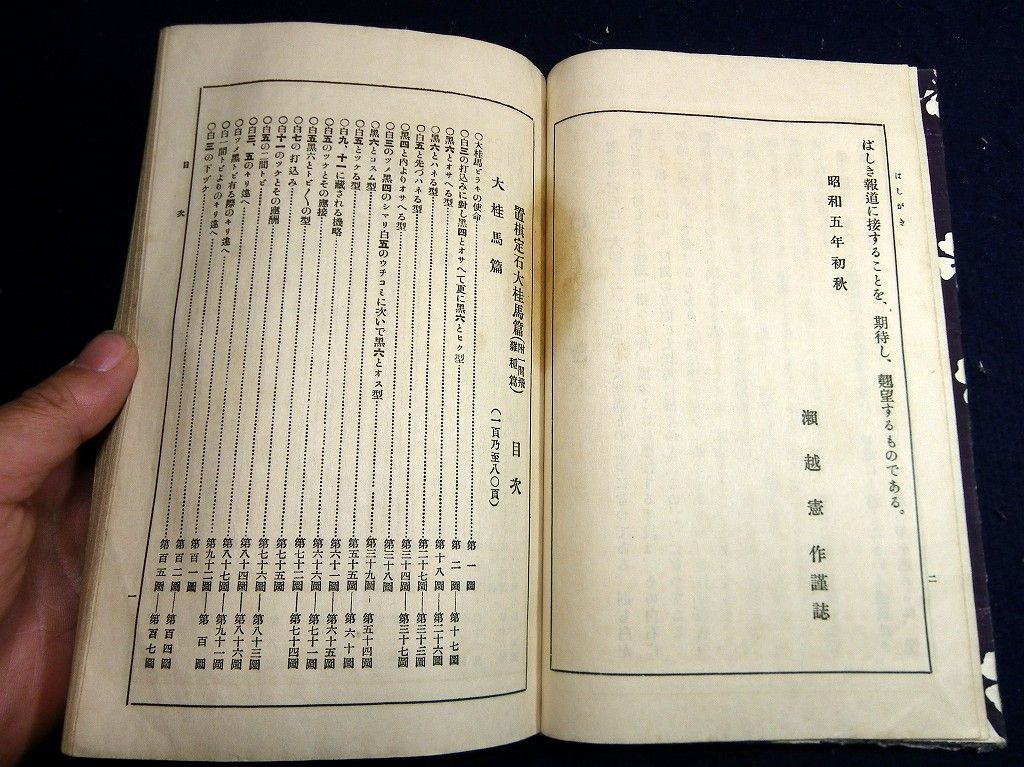 はしがき
ばしき報道に接することを、期待し、翹望するものである。
昭和五年初秋
瀬越憲作謹誌
二
置棋定石大桂馬篇(附一間飛雜種篇)目次
大桂馬篇(一頁乃至八〇頁)
○大桂馬ビラキの使命……第一圖
○白三の打込みに對し黑四とオサヘて更に黑六とヒク型……第二圖—第十七圖
○黑六とオサヘる型……第十八圖—第二十六圖
○黑六とハネる型……第二十七圖—第三十三圖
○白五と先づハネる型……第三十四圖—第三十七圖
○黑四と内よりオサヘる型……第三十八圖
○白三のツメ黑四のシマリ白五のウチコミに次いで黑六とオス型……第三十九圖—第五十四圖
○黑六とコスム型……第五十五圖—第六十圖
○白五とツケる型……第六十一圖—第六十五圖
○白九、十一に蔵される機略……第六十六圖—第七十一圖
○白五のツケとその應接……第七十二圖—第七十四圖
○白五黑六とトビ〱の型……第七十五圖
○白七の打込み……第七十六圖—第八十三圖
○白十一のツケとその應酬……第八十四圖—第八十六圖
○白五の二間トビ……第八十七圖—第九十一圖
○白三、五のキリ違へ……第九十二圖—第百圖
○白ツメ黑トビ有る際のキリ違へ……第百一圖
○白一間トビよりのキリ違へ……第百二圖—第百四圖
○白三の下ヅケ……第百五圖—第百七圖
目次
一